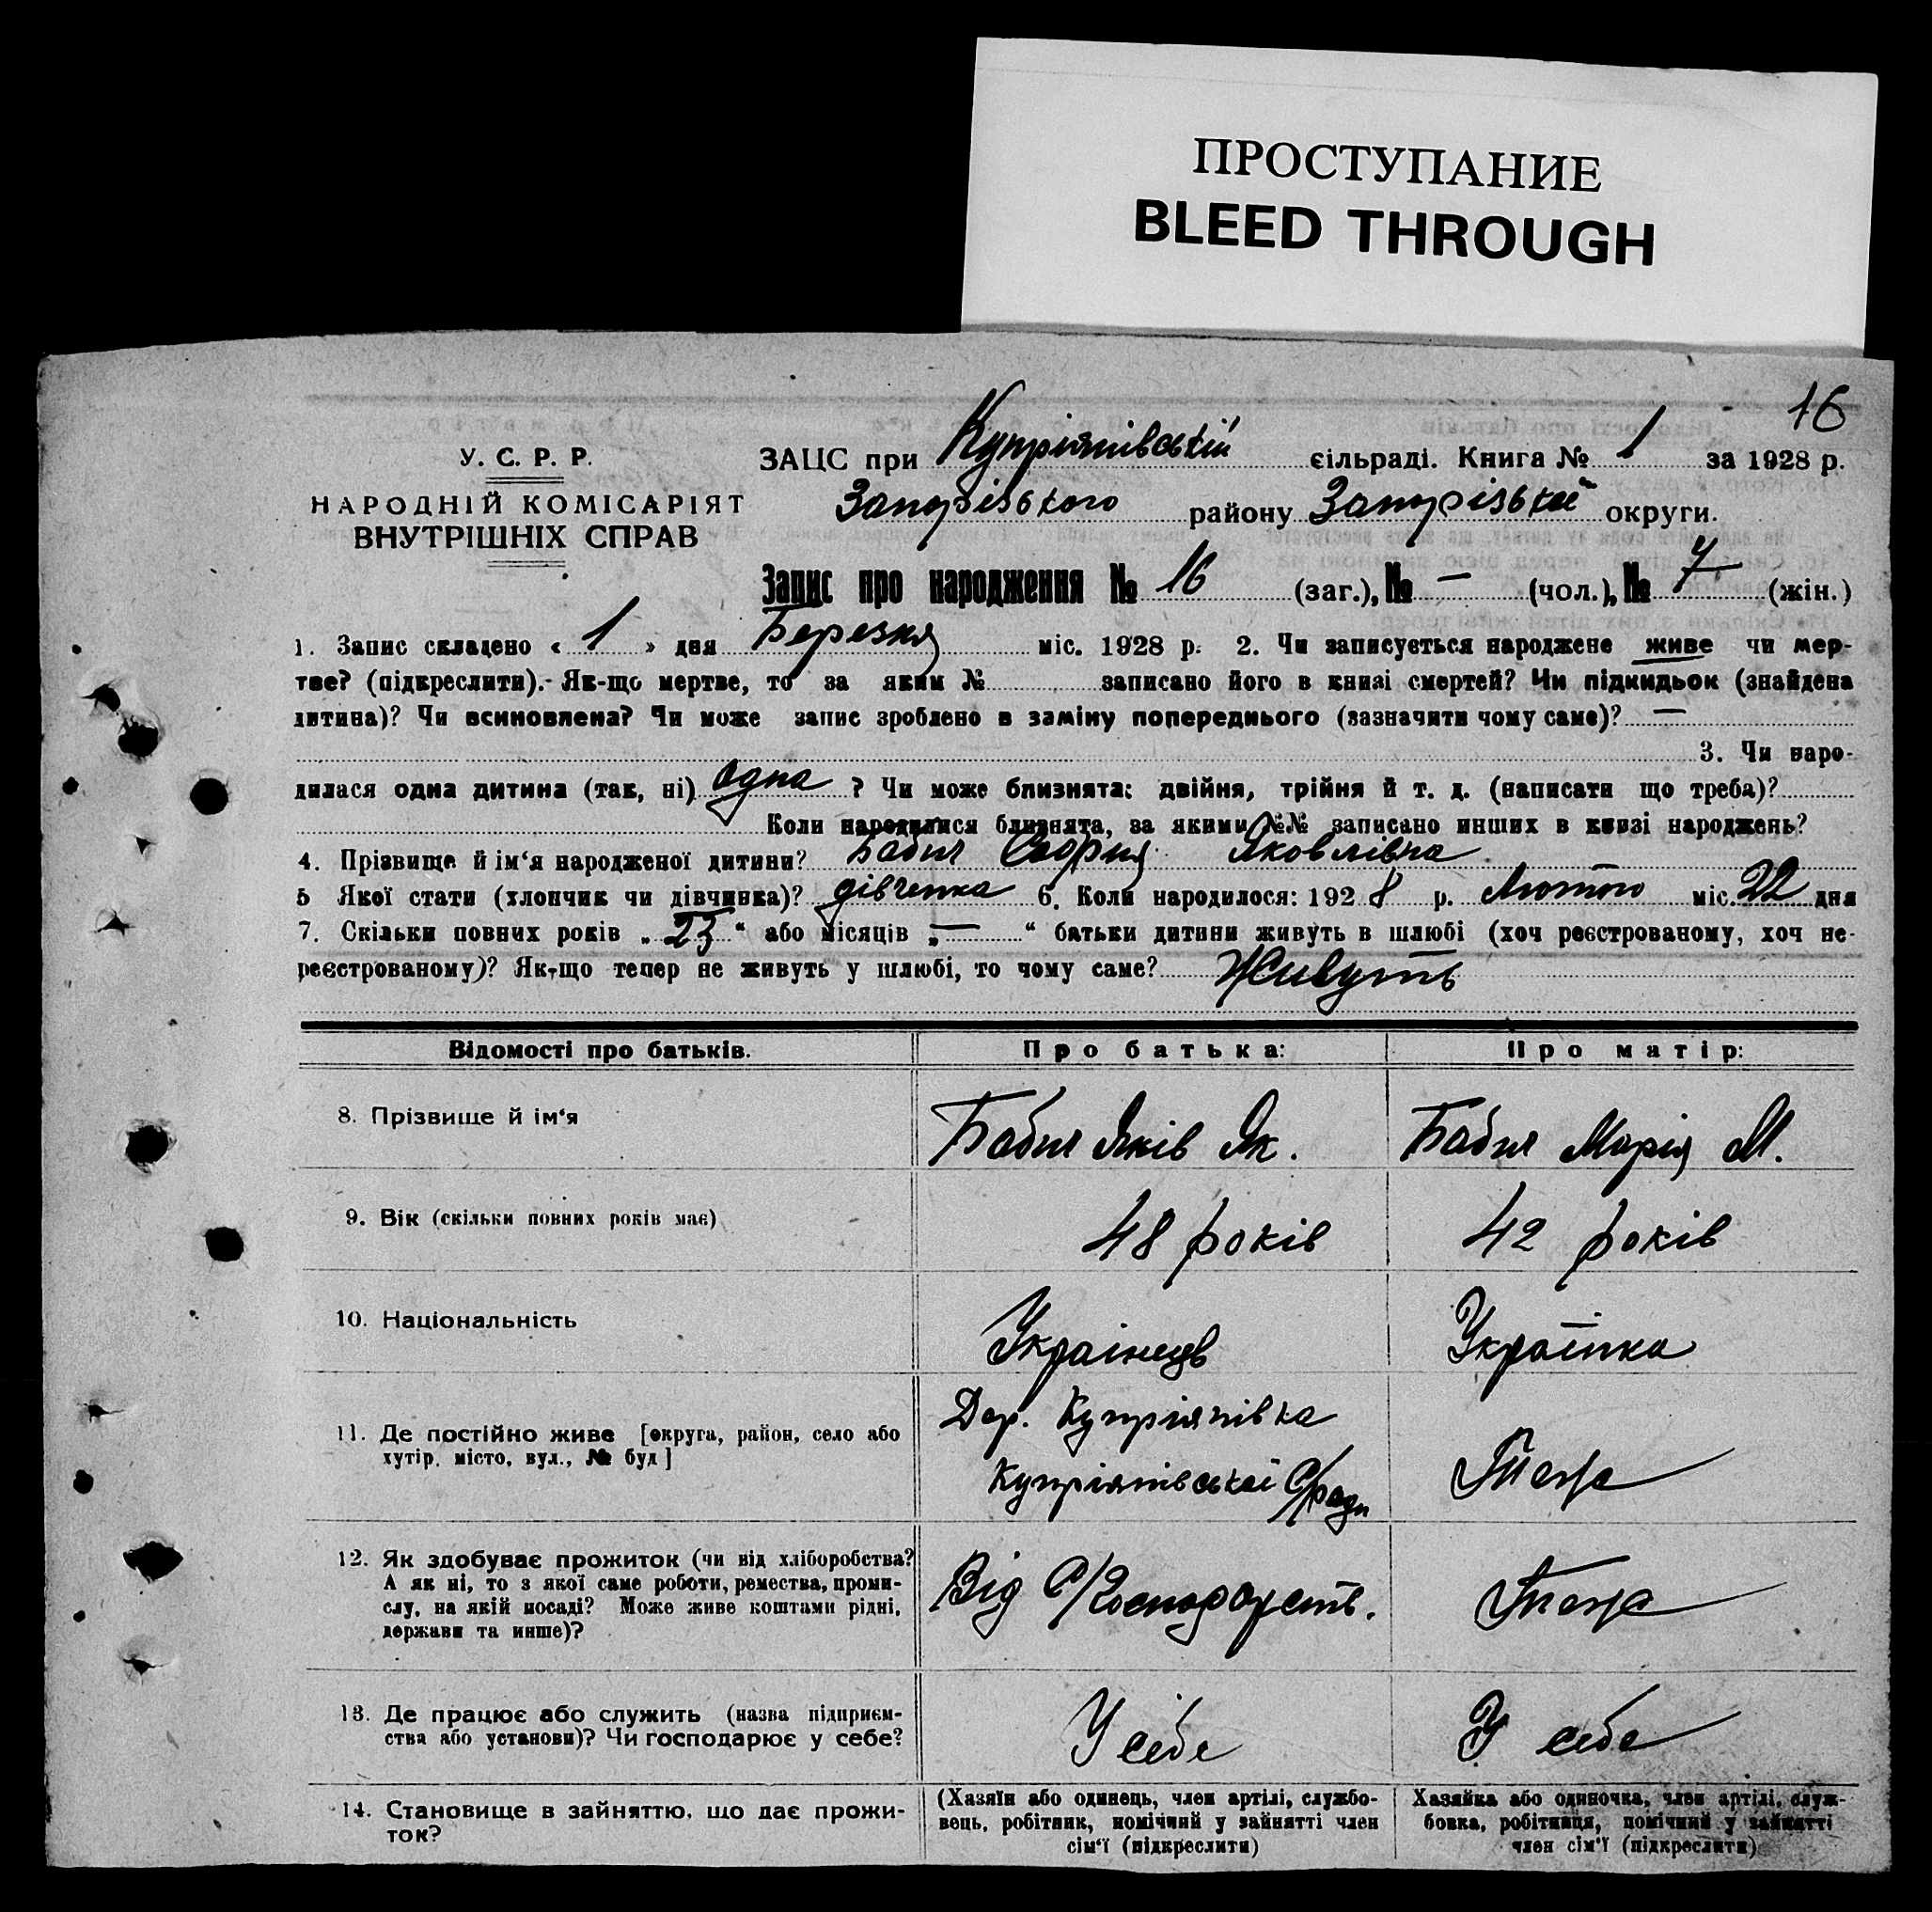 ПРОСТУПАНИЕ
BLEED THROUGH
16
У. С. Р. Р.
НАРОДНІЙ КОМІСАРІЯТ
ВНУТРІШНІХ СПРАВ
ЗАЦС при Купріянівській сільраді. Книга № 1 за 1928 р.
Запорізького району Запорізької округи.
Запис про народження № 16 (заг.), № — (чол.), № 7 (жін.)
1. Запис складено « 1 » дня Березня міс. 1928 р. 2. Чи записується народжене живе чи мер-
тве? (підкреслити). Як-що мертве, то за яким № записано його в книзі смертей? Чи підкидьок (знайдена
дитина)? Чи всиновлена? Чи може запис зроблено в заміну попереднього (зазначити чому саме)? —
3. Чи наро-
дилася одна дитина (так, ні) одна ? Чи може близнята: двійня, трійня й т. д. (написати що треба)?
Коли народилися близнята, за якими №№ записано инших в книзі народжень?
4. Прізвище й ім'я народженої дитини? Бабич Софія Яковлівна
5 Якої стати (хлопчик чи дівчинка)? дівченка 6. Коли народилося: 1928 р. Лютого міс. 22 дня
7. Скільки повних років „ 23 “ або місяців „ — “ батьки дитини живуть в шлюбі (хоч реєстрованому, хоч не-
реєстрованому)? Як-що тепер не живуть у шлюбі, то чому саме? Живуть
Відомості про батьків. Про батька: Про матір:
8. Прізвище й ім'я Бабич Яків Як. Бабич Марія М.
9. Вік (скільки повних років має) 48 років 42 років
10. Національність Українець Українка
11. Де постійно живе [округа, район, село або
хутір, місто, вул., № буд]
Дер. Купріянівка
Купріянівської С/ради
Тоже
12. Як здобуває прожиток (чи від хліборобства?
А як ні, то з якої саме роботи, ремества, проми-
слу, на якій посаді? Може живе коштами рідні,
держави та инше)?
Від С/Господарств.
Тоже
13. Де працює або служить (назва підприєм-
ства або установи)? Чи господарює у себе?
У себе
У себе
14. Становище в зайняттю, що дає прожи-
ток?
(Хазяїн або одинець, член артілі, службо-
вець, робітник, помічний у зайнятті член
сім'ї (підкреслити)
Хазяйка або одиночка, член артілі, служ-
бовка, робітниця, помічний у зайнятті
член сім'ї (підкреслити)